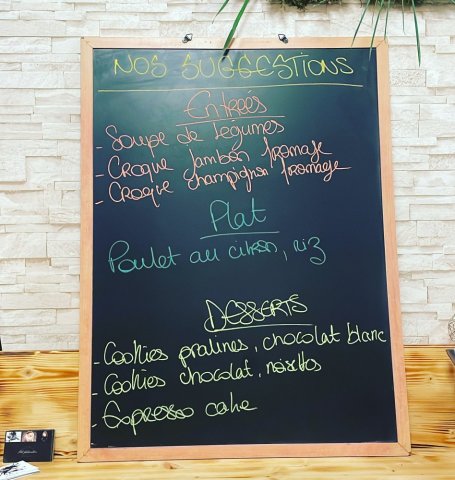 NOS SUGGESTIONS
Entrées
- Soupe de légumes
- Croque Jambon fromage
- Croque champignon fromage
Plat
Poulet au citron, riz
DESSERTS
- Cookies pralines, chocolat blanc
- Cookies chocolat, noisettes
- Espresso cake